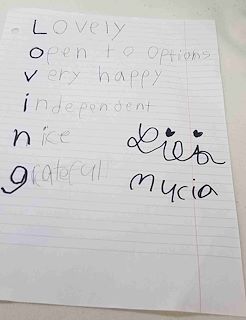 Lovely
open to options
very happy
independent
nice
grateful
Mycia